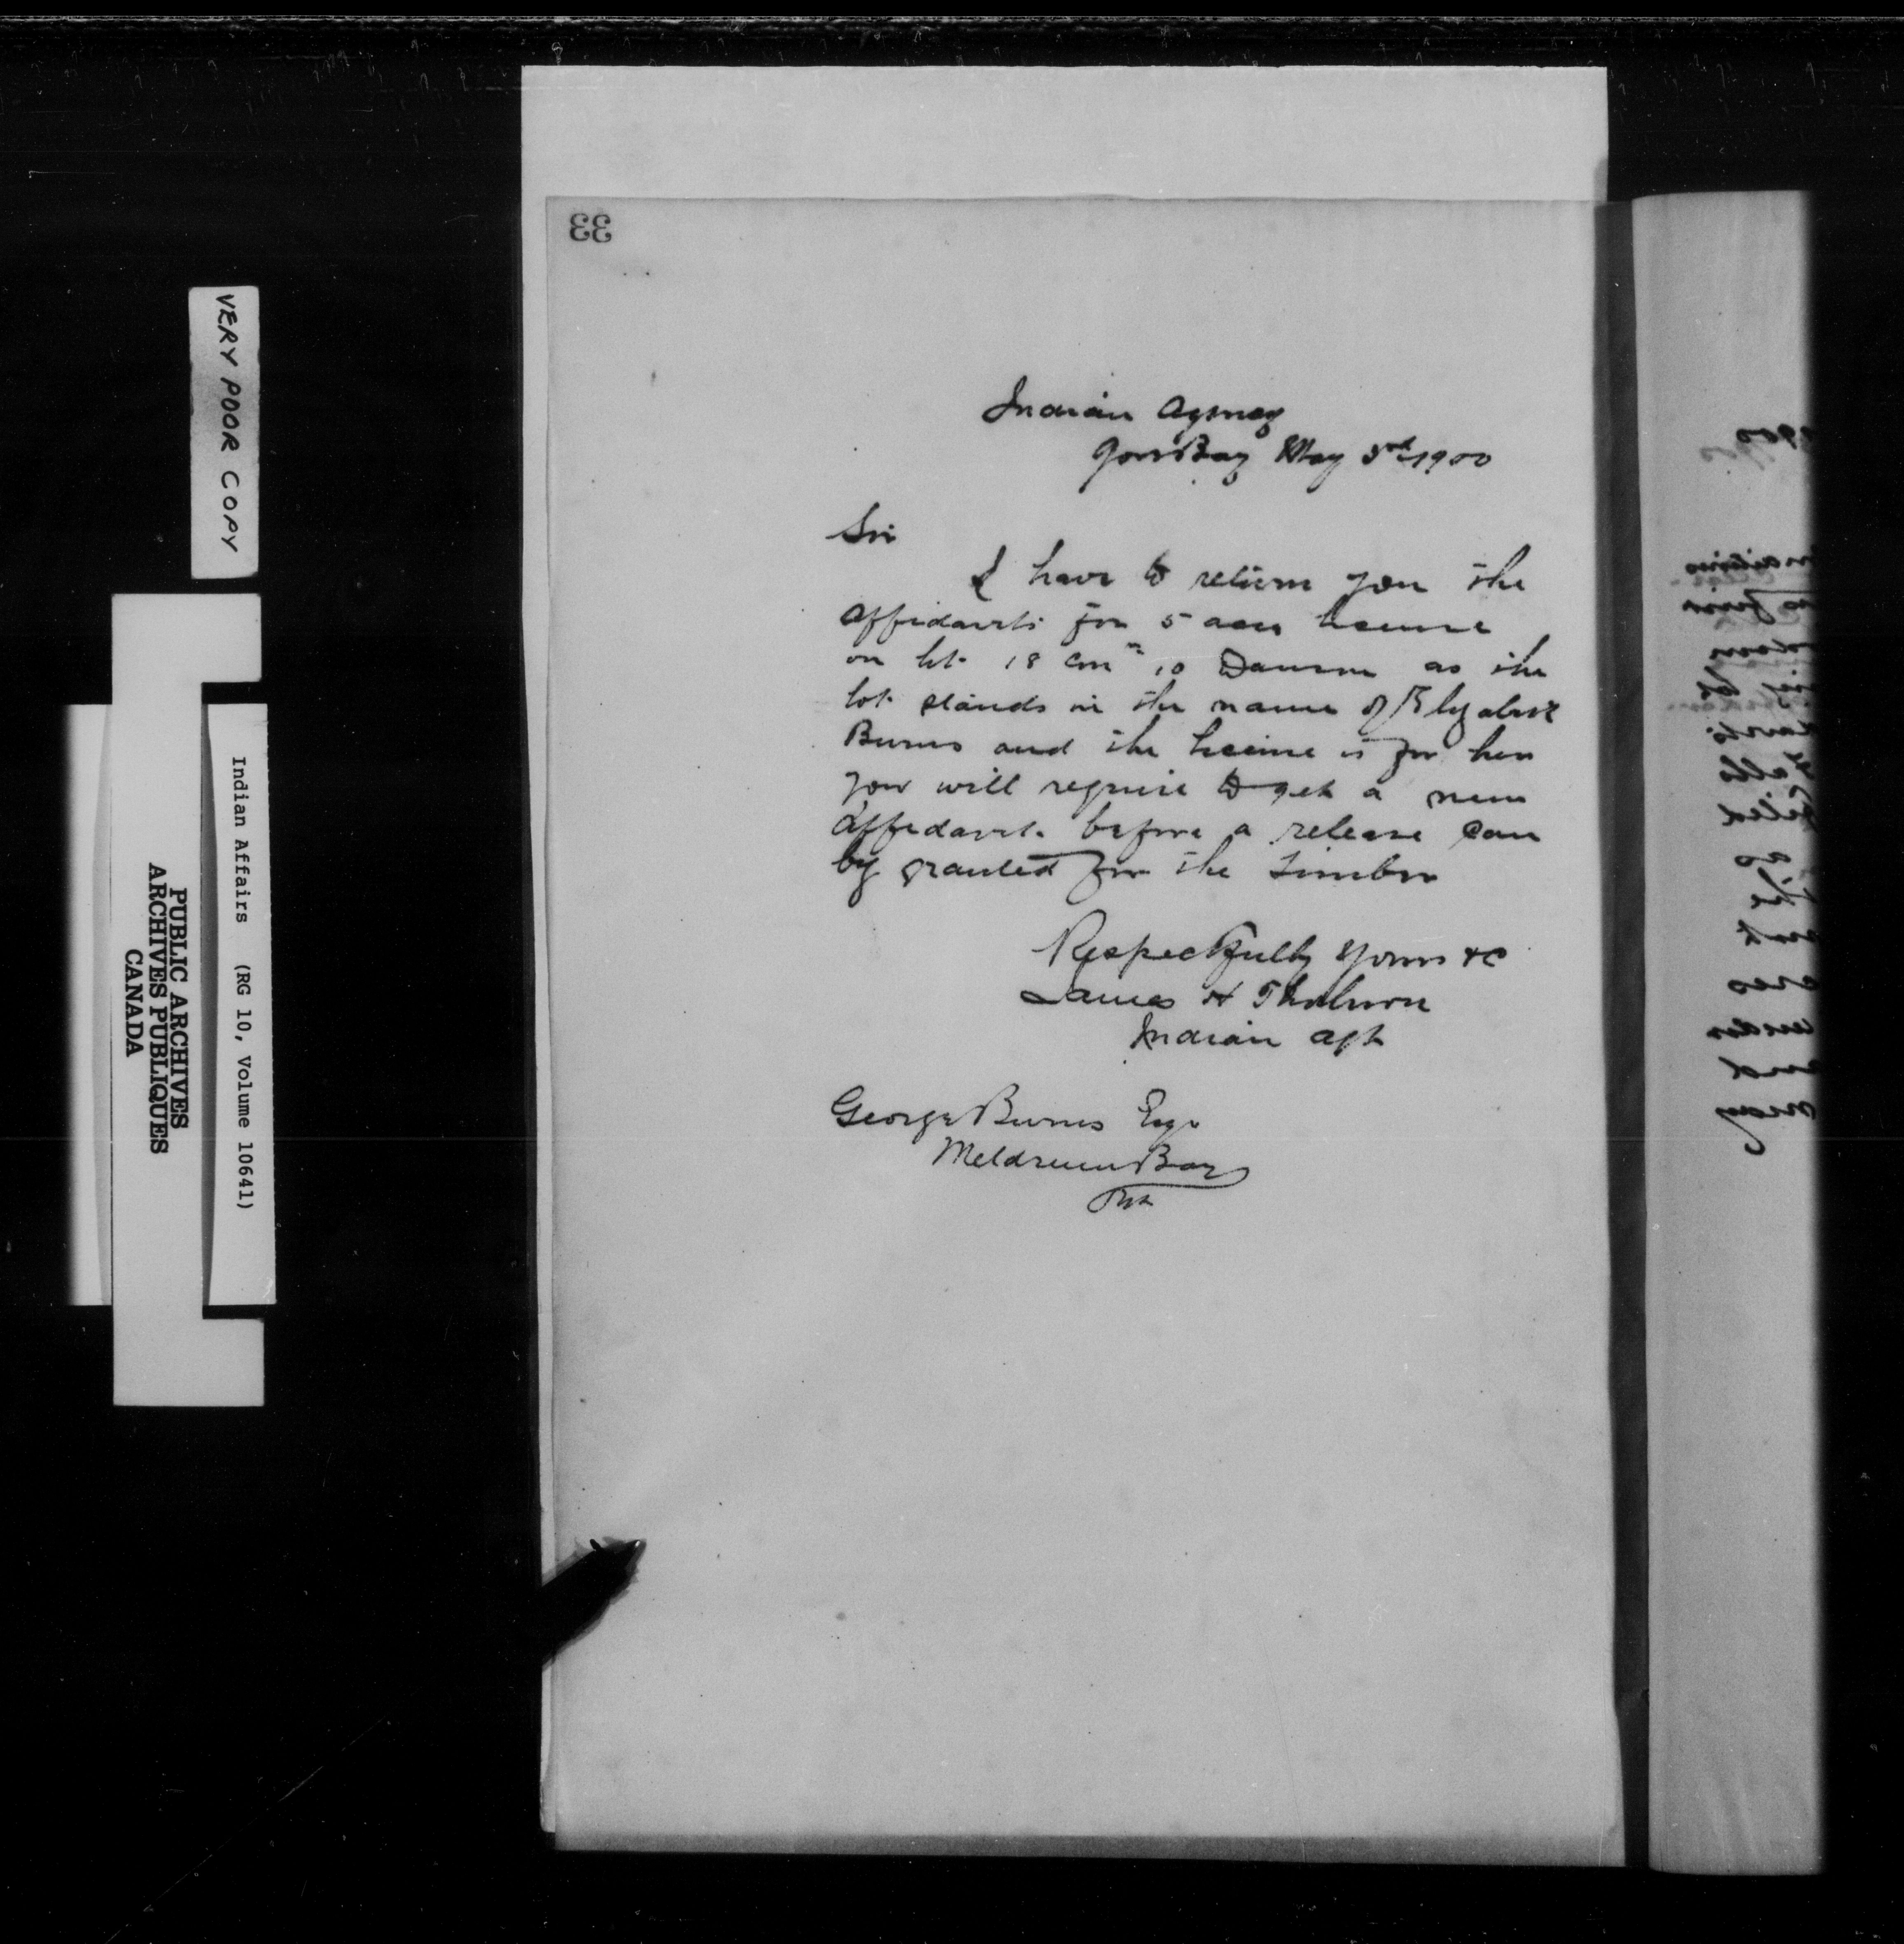 33
Indian Agency
Gore Bay May 3rd 1900
Sir
I have to return you the
affidavits for 5 acre license
on lot 18 Con 10 Dawson as the
lot stands in the name of Elizabeth
Burns and the license is for her
you will require to get a new
affidavit before a release can
by granted for the timber
Respectfully yours &c
James H Thorburn
Indian Agt
George Burns Esqr
Meldrum Bay
Ont
VERY POOR COPY
Indian Affairs (RG 10, Volume 10641)
PUBLIC ARCHIVES
ARCHIVES PUBLIQUES
CANADA
1900